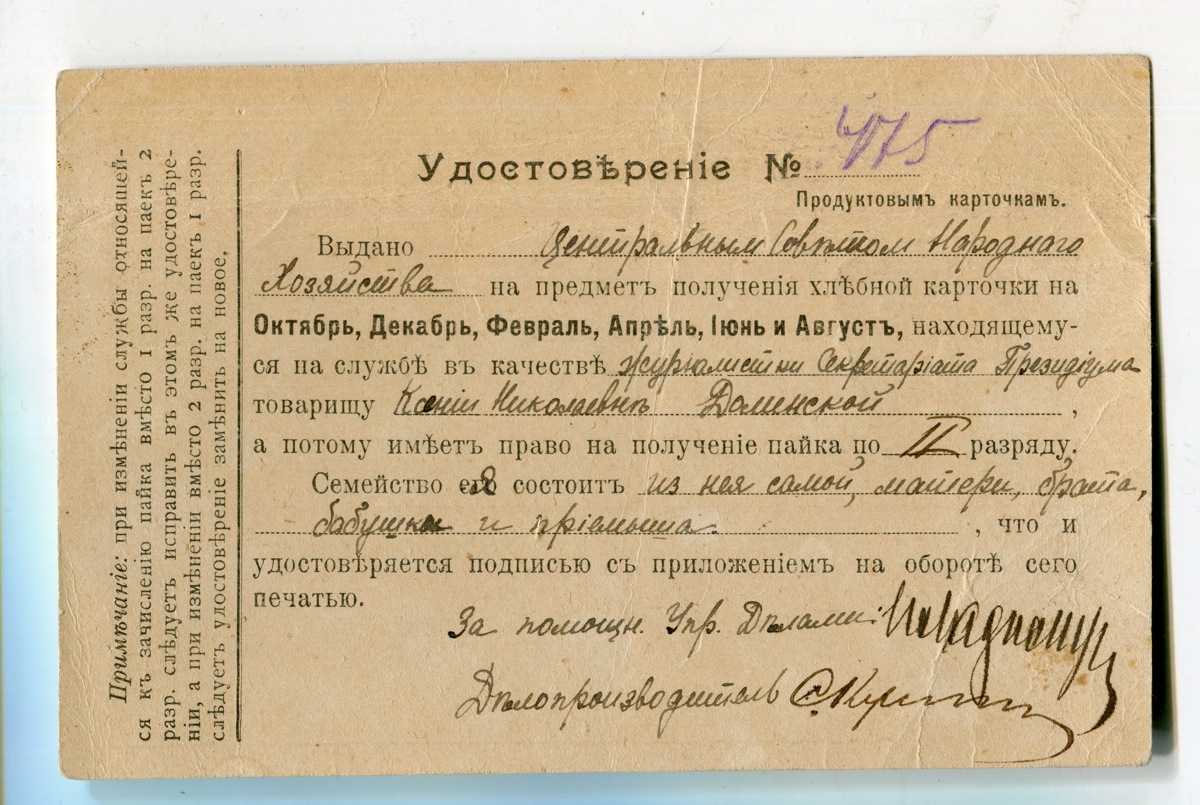 Удостовѣреніе № 475
Продуктовымъ карточкамъ.
Выдано Центральнымъ Совѣтом Народнаго
Хозяйства на предметъ полученія хлѣбной карточки на
Октябрь, Декабрь, Февраль, Апрѣль, Іюнь и Августъ, находящему-
ся на службѣ въ качествѣ журналистки Секретаріата Президіума
товарищу Ксеніи Николаевнѣ Долинской,
а потому имѣетъ право на полученіе пайка по II разряду.
Семейство ея состоитъ из нея самой, матери, брата,
бабушки и пріемыша., что и
удостовѣряется подписью съ приложеніемъ на оборотѣ сего
печатью.
За помощн. Упр. Дѣлами:
Дѣлопроизводитель
Примѣчаніе: при измѣненіи службы относящей-
ся къ зачисленію пайка вмѣсто 1 разр. на паекъ 2
разр. слѣдуетъ исправить въ этомъ же удостовѣре-
ніи, а при измѣненіи вмѣсто 2 разр. на паекъ 1 разр.
слѣдуетъ удостовѣреніе замѣнить на новое.